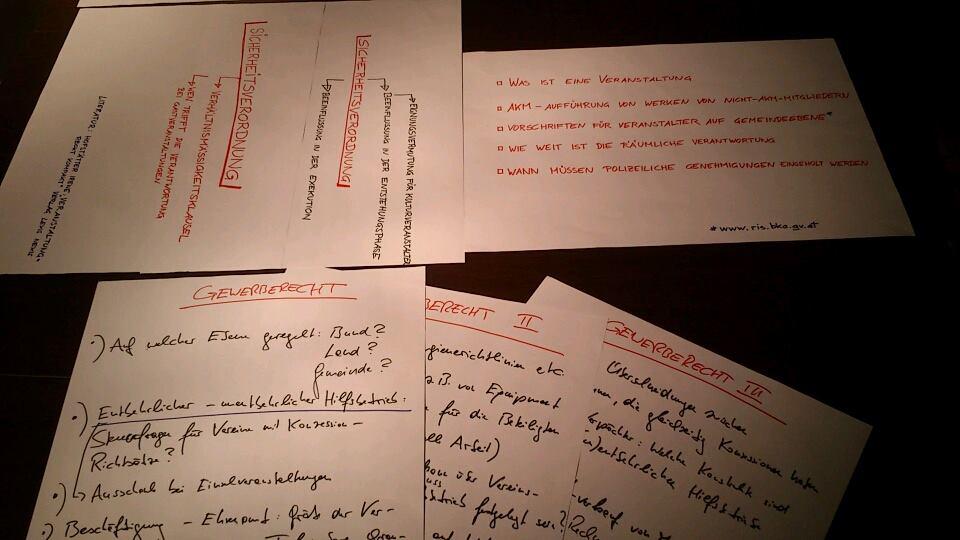 SICHERHEITSVERORDNUNG
VERHÄLTNISMÄSSIGKEITSKLAUSEL
WEN TRIFFT DIE VERANTWORTUNG
BEI GASTVERANSTALTUNGEN
LITERATUR: IRENE "VERANSTALTUNG"
RECHT KOMPAKT" VERLAG
SICHERHEITSVERORDNUNG
EIGNUNGSVERMUTUNG FÜR KULTURVERANSTALTER
BEEINFLUSSUNG IN DER ENTSTEHUNGSPHASE
BEEINFLUSSUNG IN DER EXEKUTION
WAS IST EINE VERANSTALTUNG
AKM - AUFFÜHRUNG VON WERKEN VON NICHT-AKM-MITGLIEDERN
VORSCHRIFTEN FÜR VERANSTALTER AUF GEMEINDEEBENE*
WIE WEIT IST DIE RÄUMLICHE VERANTWORTUNG
WANN MÜSSEN POLIZEILICHE GENEHMIGUNGEN EINGEHOLT WERDEN
*www.ris.bka.gv.at
GEWERBERECHT
Auf welcher Ebene geregelt: Bund?
Land?
Gemeinde?
Entbehrlicher - unentbehrlicher Hilfsbetrieb:
Steuerfragen für Vereine mit Konzession -
Richtsätze?
Ausschank bei Einzelveranstaltungen
Beschäftigung - Ehrenamt: Größe der Ver-
BERECHT II
gienerichtlinien etc.
z.B. von Equipment
für die Beteiligten
Arbeit)
oder Vereins-
betrieb festgelegt sein?
GEWERBERECHT III
Überschneidungen zwischen
die gleichzeitig Konzessionen haben
welche Konstrukte sind
entbehrlicher Hilfsbetriebe